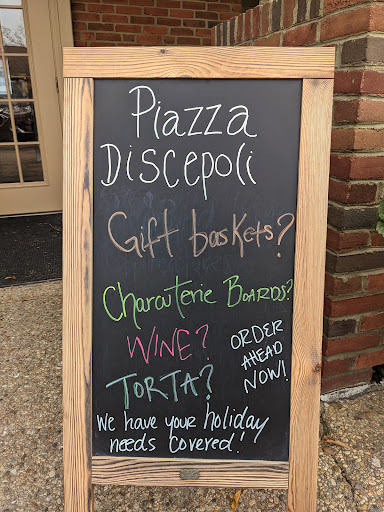 Piazza
Discepoli
Gift baskets?
Charcuterie Boards?
WINE?
TORTA?
ORDER
AHEAD
NOW!
We have your holiday
needs covered!